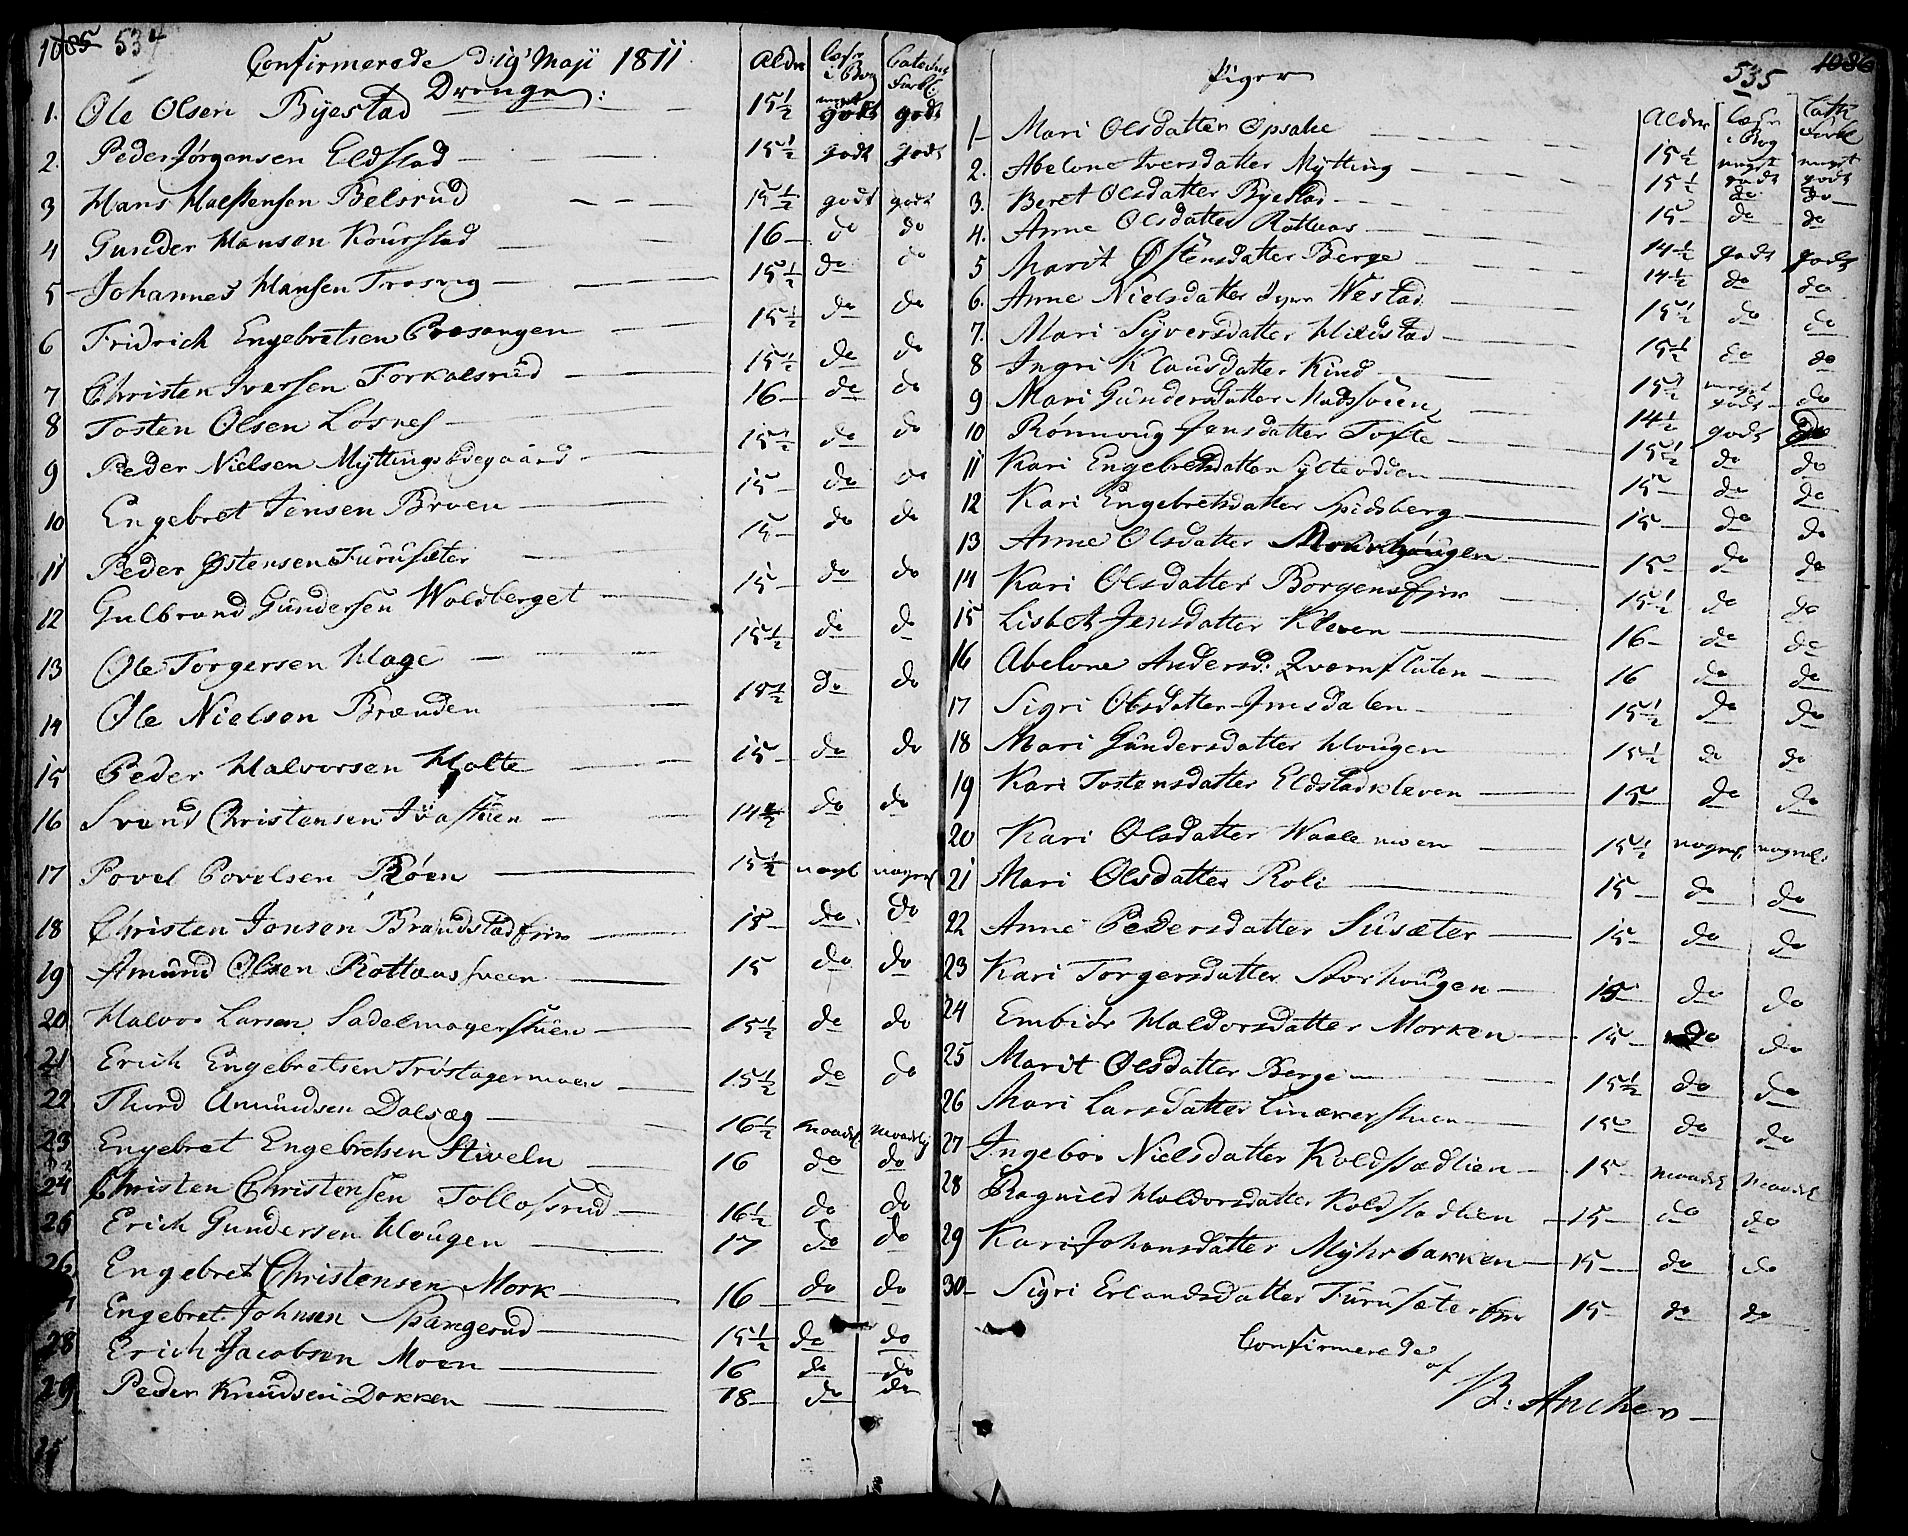 1085 534
Confirmerede D: 19 Maji 1811
Drenge: Alder Læsr i Bog Catechis Forkl:
1. Ole Olsen Byestad 15½ meget godt godt
2. Peder Jørgensen Eldstad 15½ godt godt
3 Hans Halstensen Belsrud 15½ godt godt
4 Gunder Hansen Kourstad 16 do do
5 Johannes Hansen Trosvig 15½ do do
6 Fridrich Engebretsen Præsangen 15½ do do
7 Christen Iversen Torkalsrud 15½ do do
8 Tosten Olsen Løsnes 16 do do
9 Peder Nielsen Myttingsødegaard 15½ do do
10 Engebret Jensen Broen 15 do do
11 Peder Østensen Furusæter 15 do do
12 Gulbrand Gundersen Woldberget 15 do do
13 Ole Torgersen Hage 15½ do do
14 Ole Nielsen Brænden 15½ do do
15 Peder Halvorsen Holte 15 do do
16 Svend Christensen Ivastuen 14½ do do
17 Povel Povelsen Røen 15½ nogl nogenl
18 Christen Jonsen Brandstad 15 do do
19 Amund Olsen Rottaassveen 15 do do
20 Halvor Larsen Sadelmagerstuen 15½ do do
21 Erich Engebretsen Trøstagermoen 15½ do do
22 Thord Amundsen Dalsæg 16½ maadel maadelig
23 Engebret Engebretsen Stiveln 16 do do
24 Christen Christensen Tollofsrud 16½ do do
25 Erich Gundersen Hougen 17 do do
26 Engebret Christensen Mork 16 do do
Engebret Johnsen Spangerud 15½ do do
28 Erich Jacobsen Moen 16 do do
29 Peder Knudsen Dokken 18 do do
Piger 535 1086
Alder Læsr i Bog Cate Forkl
1 Mari Olsdatter Opsahe 15½ meget godt meget godt
2. Abelone Iversdatter Mytting 15½ do do
3. Beret Olsdatter Byestad 15 do do
4. Anne Olsdatter Rottaas 14½ godt godt
5 Marit Østensdatter Berge 14½ do do
6. Anne Nielsdatter Westad 15½ do do
7. Mari Syversdatter Hildestad 15½ do do
8 Ingri Klausdatter Kind 15½ meget godt do
9 Mari Gundersdatter Madssveen 14½ godt do
10 Rønnoug Jensdatter Tofte 15½ do do
11 Kari Engebretsdatter Sylteodden 15 do do
12 Kari Engebretsdatter Spidsberg 15 do do
13 Anne Olsdatter 15 do do
14 Kari Olsdatter 15½ do do
15 Lisbet Jensdatter Kleven 16 do do
16 Abelone Andersd: Qvernfluten 16 do do
17 Sigri Olsdatter Imsdalen 15½ do do
18 Mari Gundersdatter Hougen 15½ do do
19 Kari Tostensdatter Eldstadkleven 15 do do
20 Kari Olsdatter Waalemoen 15½ nogenl nogenl
21 Mari Olsdatter Roli 15 do do
22 Anne Pedersdatter Susæter 15 do do
23 Kari Torgersdatter Storhougen 15 do do
24 Embiør Haldorsdatter Morken 15 do do
25 Marit Olsdatter Berge 15½ do do
26 Mari Larsdatter Linækerstuen 15 do do
27 Ingebor Nielsdatter Koldstadlien 15 maadel maadel
28 Ragnild Haldorsdatter Koldstadlien 15 do do
29 Kari Johansdatter Myhrbakken 15 do do
30 Sigri Erlandsdatter Furusæter 15 do do
Confirmerede
af
B: Ancher